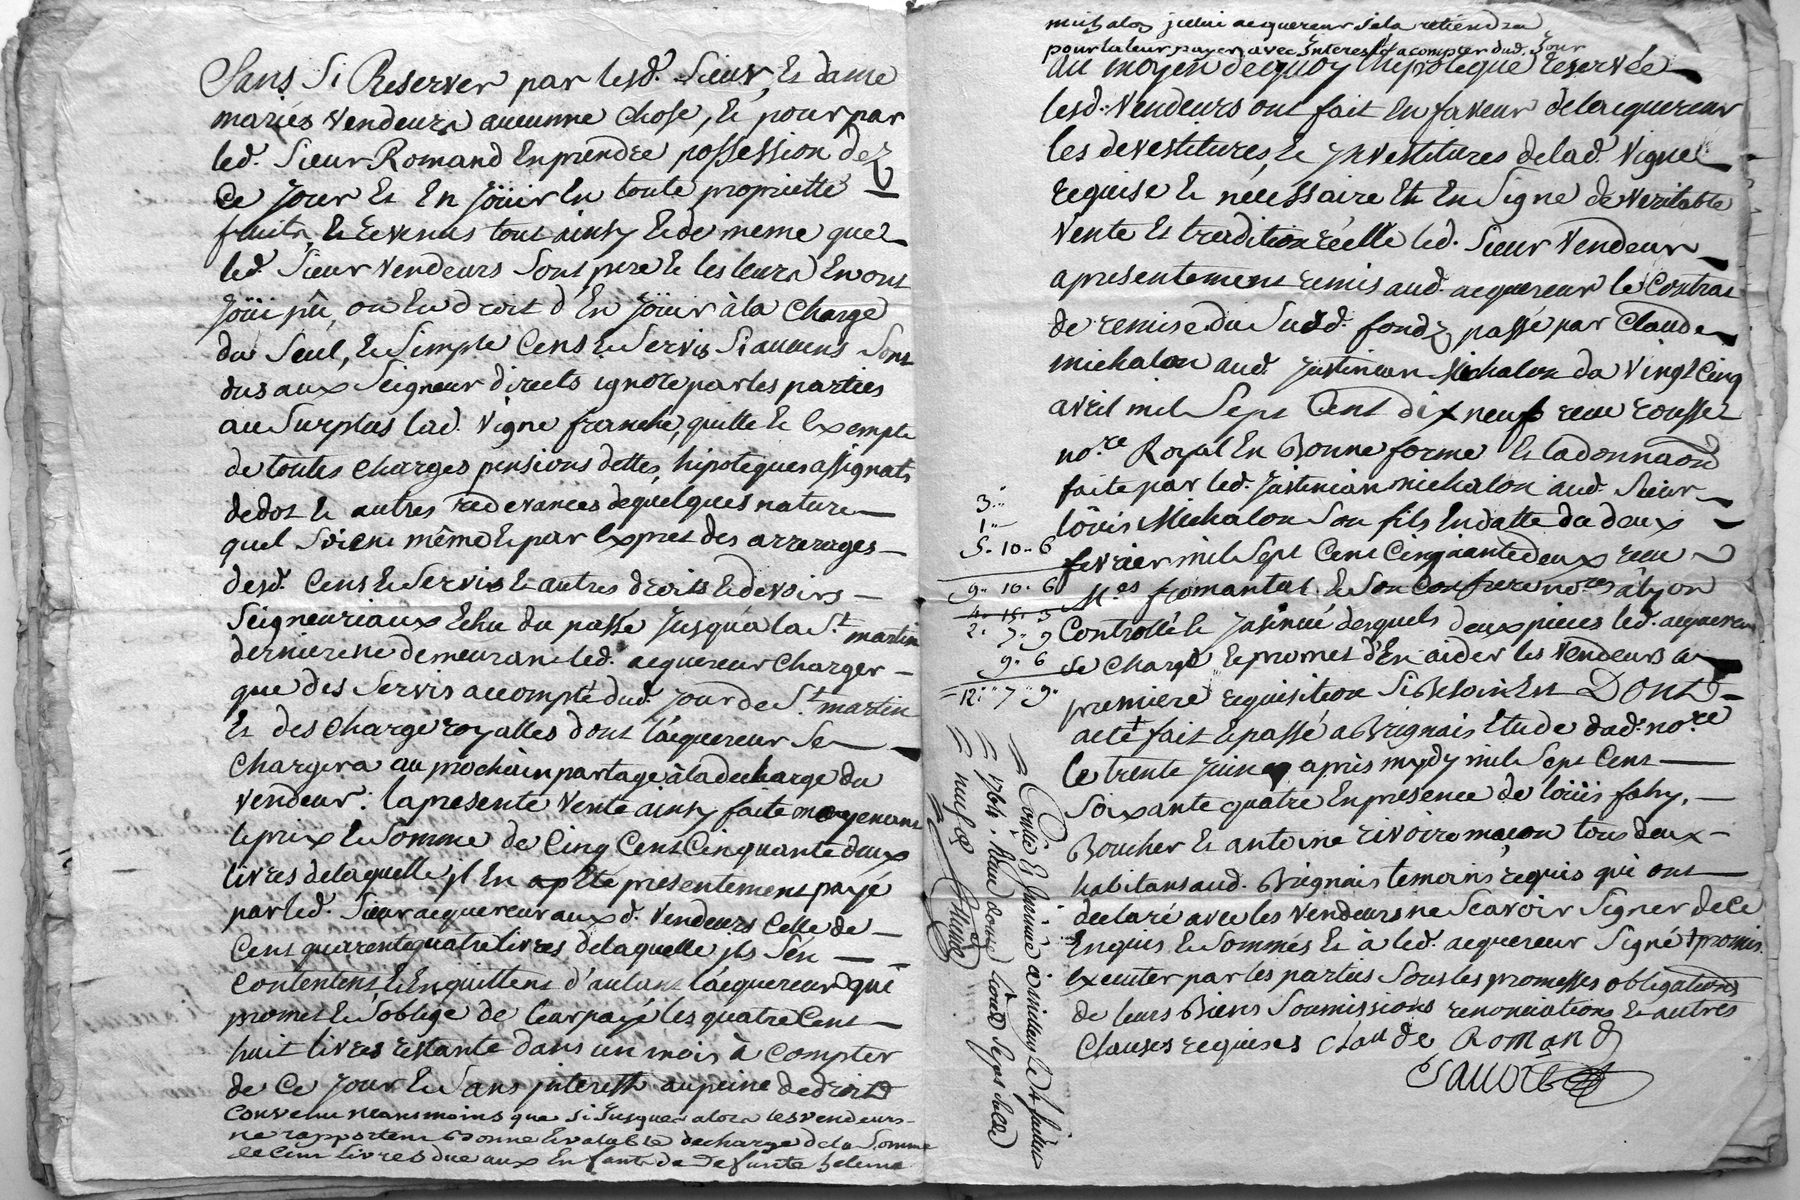 Sans Si Reserver par lesd. Sieur, Et dame
mariés Vendeurs aucunne chose, Et pour par
led. Sieur Romand En prendre possession dez
Ce Jour Et En Joüir En toute propriette
fruits, Et Revenus tout ainsy Et de meme que
led. Sieur Vendeurs Sont pere Et les leurs En ont
Joüi pû, ou Eu droit d'En Joüir à la Charge
du Seul, Et Simple Cens Et Servis Si aucuns Sont
dus aux Seigneur directs ignoré par les parties
au Surplus lad. Vigne franche, quitte Et Exempte
de toutes Charges pensions dettes, hipoteques assignats
de dot Et autres redevances de quelques nature
quel Soient même Et par Exprès des arrerages
desd. Cens Et Servis Et autres droits Et devoirs
Seigneuriaux Echu du passé Jusqu'à la St. martin
derniere ne demeurant led. acquereur Charger
que des Servis a compté dud. Jour de St. martin
Et des Charge royalles dont l'acquereur Se
Chargera au prochain partage à la decharge du
Vendeur: la presente Vente ainsy faite moyenant
le prix Et Somme de Cinq Cent Cinquante deux
livres de laquelle il En a Eté presentement payé
par led. Sieur acquereur aux d. Vendeurs Celle de
Cent quarente quatre livres de laquelle ils S'en
Contentent, Et En quittent d'autant l'acquereur qui
promet Et S'oblige de leur payé les quatre Cent
huit livres restante dans un mois à Compter
de Ce Jour Et Sans interest au peine de droit
Convenu neansmoins que Si Jusques alors les vendeurs
ne rapportent Bonne Et valable decharge de la Somme
de Cent livres due aux Enfants de defunte helene
michalon Jcelui acquereur Se la retiendra
pour la leur payer avec Interest a compter dud. Jour
au moyen de quoy l'hipoteque reservée
lesd. Vendeurs ont fait En faveur de l'acquereur
les devestitures, Et Jnvestitures de lad. Vigne
requise Et nécessaire Et En Signe de Veritable
Vente Et tradition réelle led. Sieur Vendeur
a presentement remis aud. acquereur le Contrat
de remise du Susd. fondz passé par Claude
michalon aud. Justinian Michalon du Vingt Cinq
avril mil Sept Cent dix neuf reçu rousset
no.re Royal En Bonne forme Et la donnaon
faite par led. Justinian michalon aud. Sieur
loüis Michalon Son fils En datte du deux
fevrier mil Sept Cent Cinquante deux reçu
M.es fromantal Et Son Confrere no.res à lyon
Controllé Et Jnsinué desquels deux pieces led. acquereur
Se Charge Et promet d'En aider les Vendeurs a
premiere requisition Si Besoin Est DONT
acte fait Et passé a Brignais Etude dud. no.re
le trente Juin après mydy mil Sept Cent
Soixante quatre En presence de loüis fahy,
Boucher Et antoine rivoire maçon tous deux
habitans aud. Brignais temoins requis qui ont
declaré avec les Vendeurs ne Scavoir Signer de Ce
Enquis Et Sommés Et à led. acquereur Signé promis
Executer par les parties Sous les promesses obligations
de leurs Biens Soumissions renonciations Et autres
Clauses requises Claude Romand
3"
1"
5. 10. 6
9. 10. 6
4. 15. 3
2. 7. 9
9. 6
12. 7. 9
Conllé Et Insinué à millery le
1764. Reçu douze livres Sept Sols
neuf d.